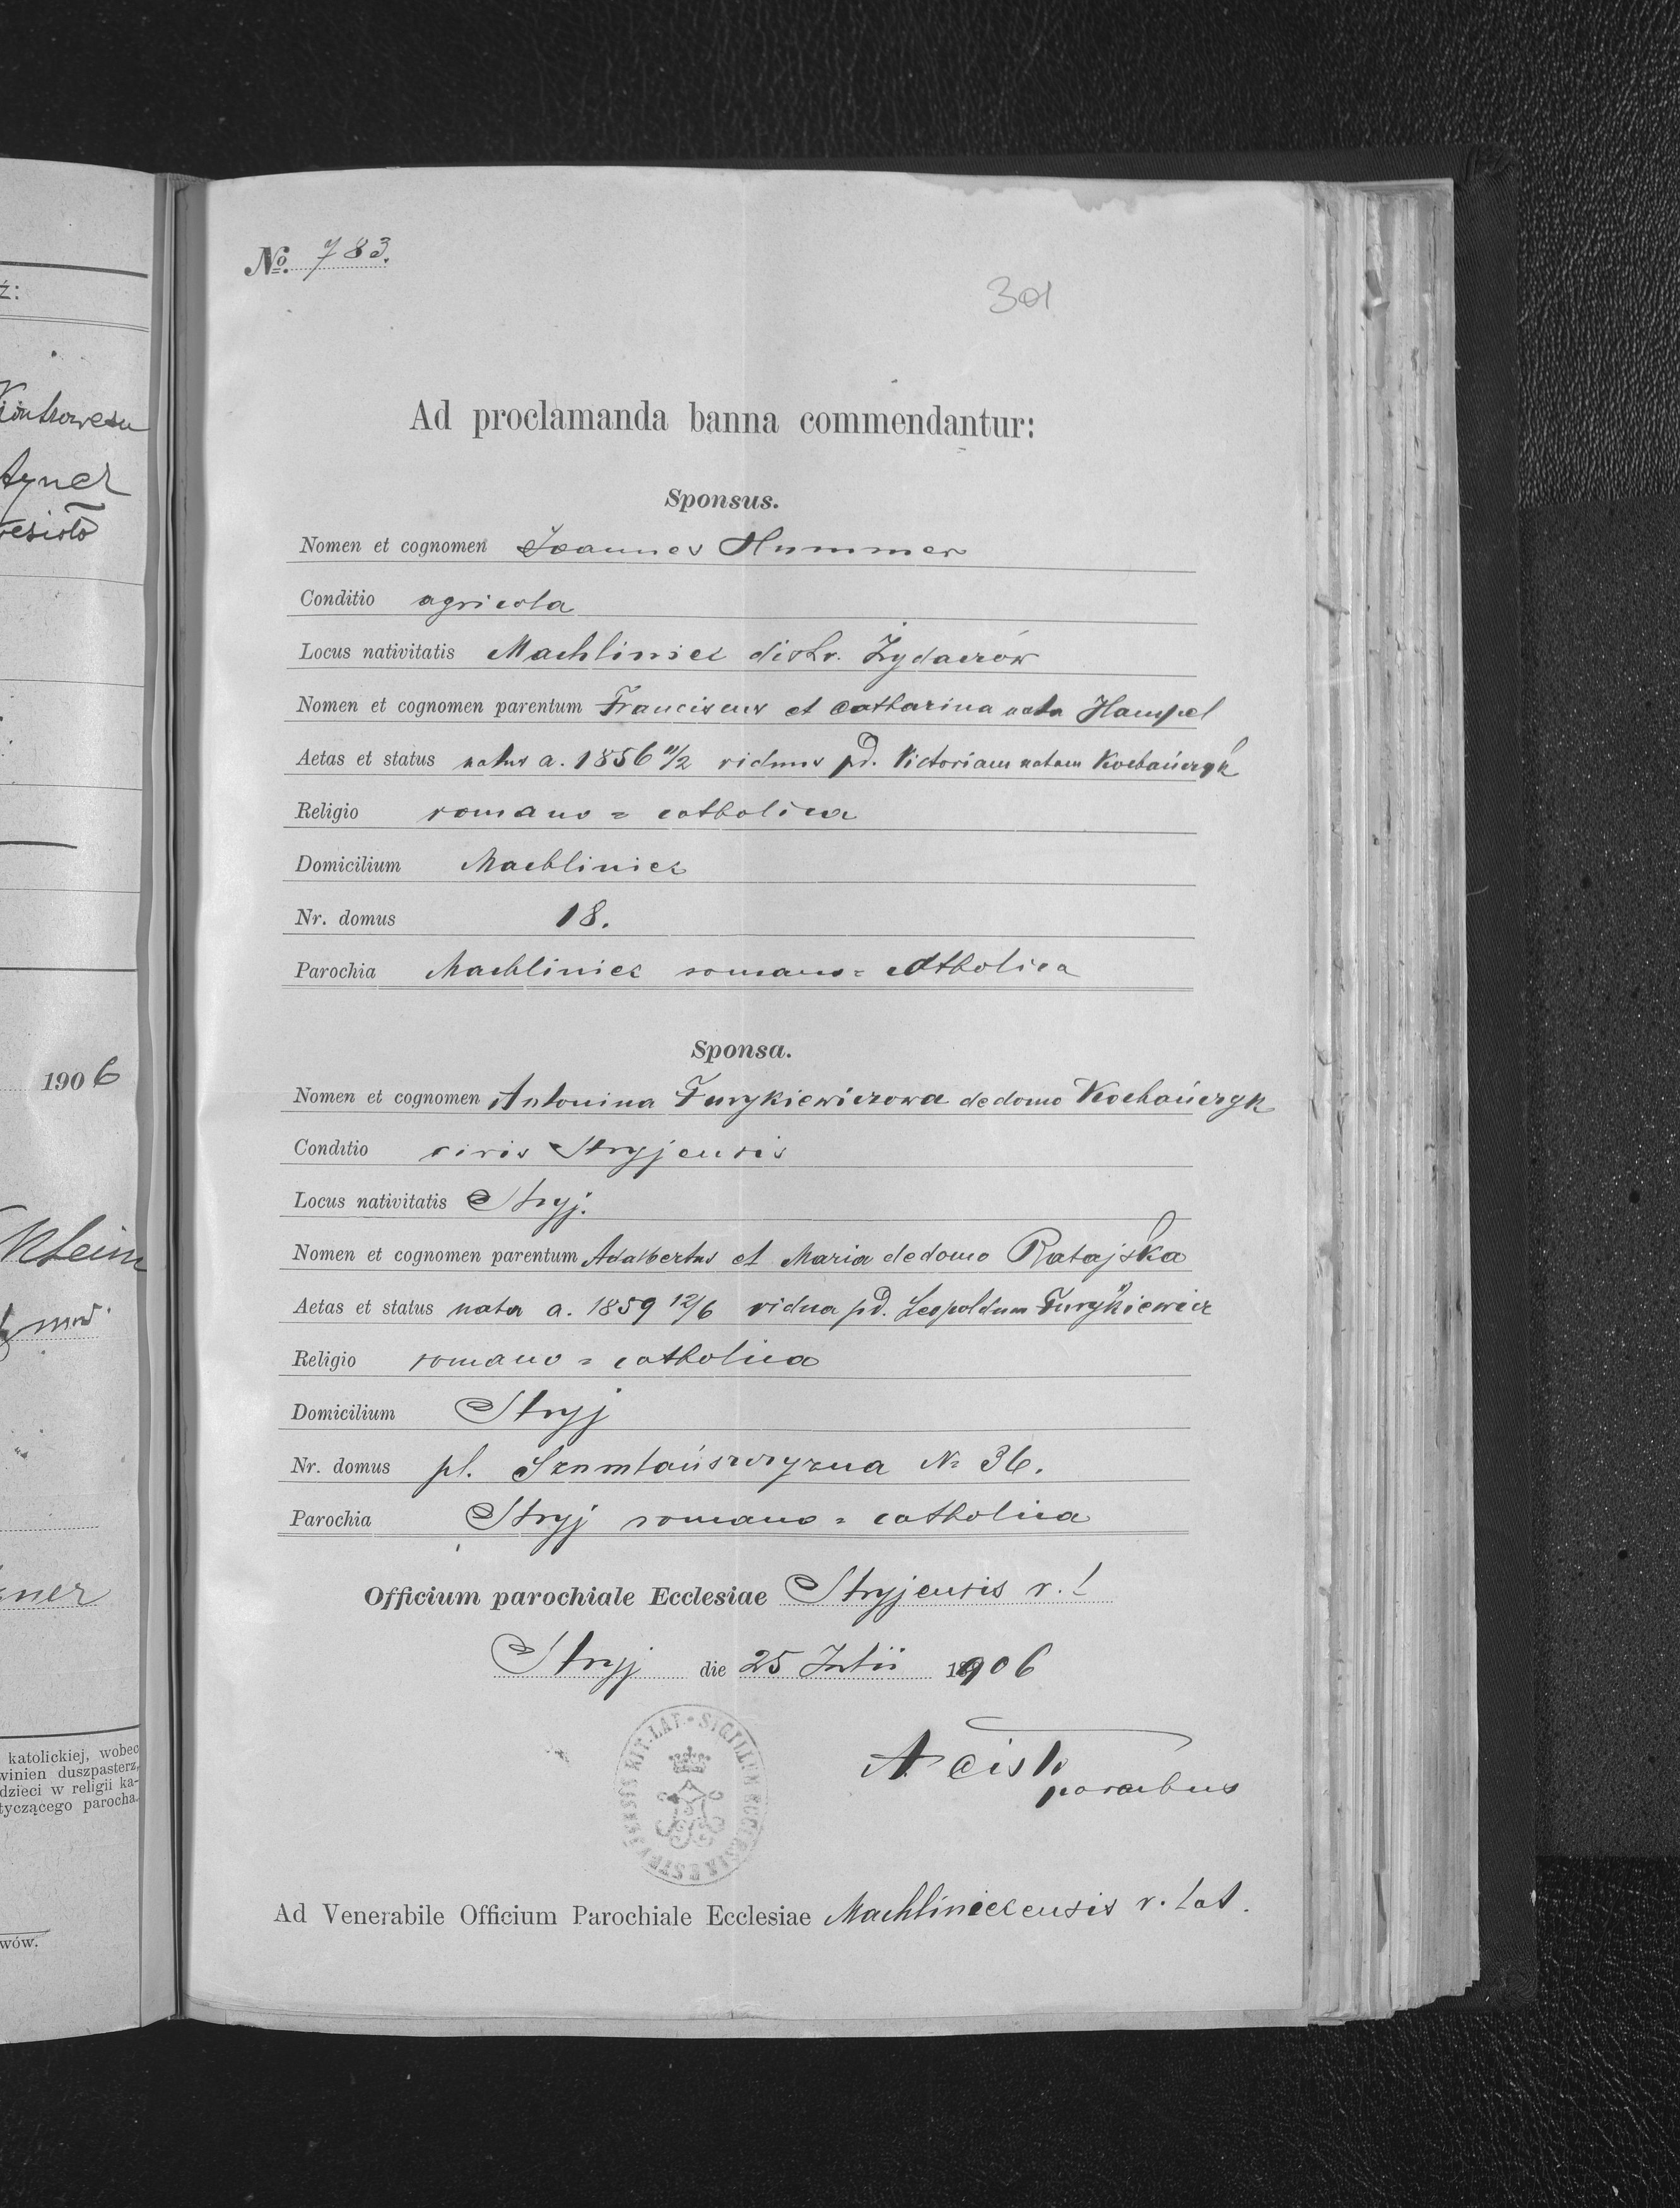 ż:
1906
katolickiej, wobec
winien duszpasterz,
dzieci w religii ka-
tyczącego parocha.
wów.
No. 783.
301
Ad proclamanda banna commendantur:
Sponsus.
Nomen et cognomen Joannes Hummer
Conditio agricola
Locus nativitatis Machliniec distr. Żydaczów
Nomen et cognomen parentum Franciscus et Catharina nata Hampel
Aetas et status natus a. 1856 11/2 viduus pd. Victoriam natam Kochańczyk
Religio romano = catholica
Domicilium Machliniec
Nr. domus 18.
Parochia Machliniec romano = catholica
Sponsa.
Nomen et cognomen Antonina Furykiewiczowa de domo Kochańczyk
Conditio civis Stryjensis
Locus nativitatis Stryj.
Nomen et cognomen parentum Adalbertus et Maria de domo Ratajska
Aetas et status nata a. 1859 12/6 vidua pd. Leopoldum Furykiewicz
Religio romano = catholica
Domicilium Stryj
Nr. domus pl. Szumlańszczyzna No 36.
Parochia Stryj romano = catholica
Officium parochiale Ecclesiae Stryjensis r. l
Stryj die 25 Julii 1906
SIGILLUM ECCLESIAE STRYJENSIS RIT. LAT.
A Cisło
parochus
Ad Venerabile Officium Parochiale Ecclesiae Machliniecensis r. lat.